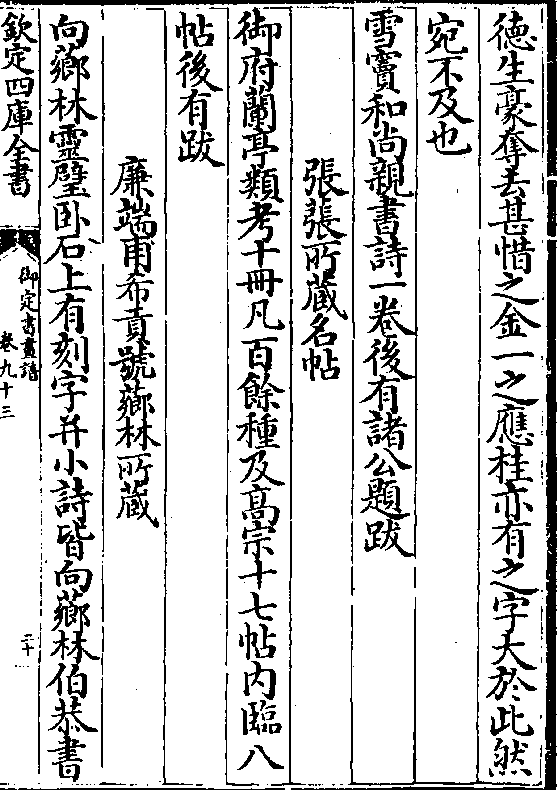 徳生豪奪去甚惜之金一之應桂亦有之字大於此然
宛不及也
雪竇和尚親書詩一卷後有諸公題跋
張張所藏名帖
御府蘭亭類考十冊凡百餘種及髙宗十七帖内臨八
帖後有跋
廉端甫希貢號薌林所藏
向薌林靈璧卧石上有刻字并小詩皆向薌林伯恭書
欽定四庫全書
御定書畫譜
卷九十三
二十